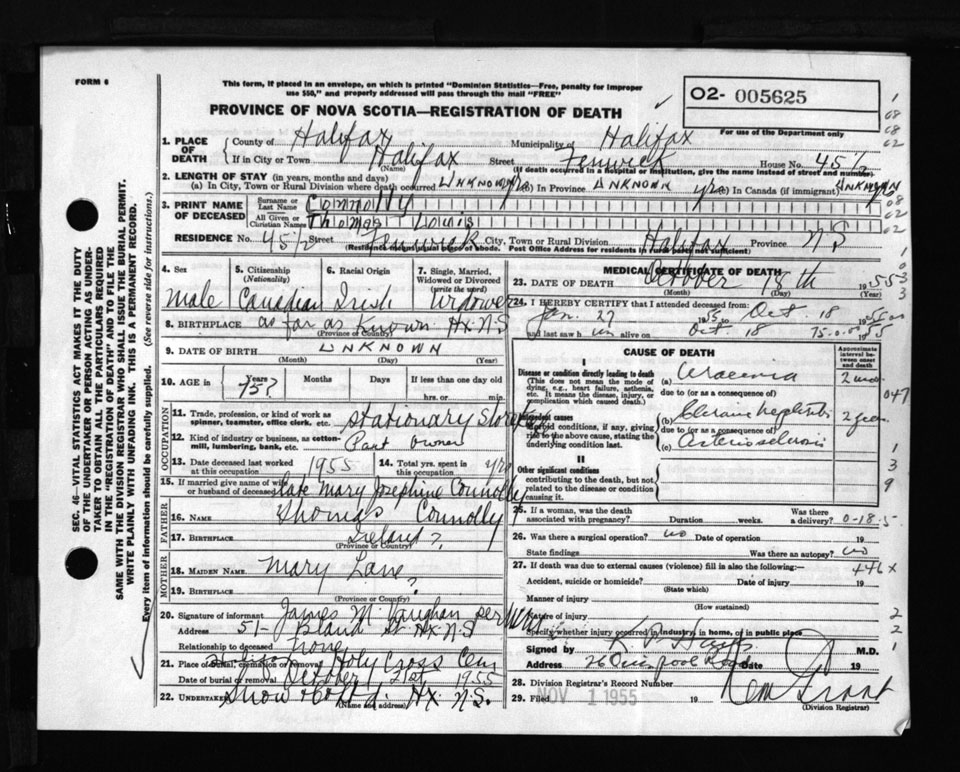 FORM 6
This form, if placed in an envelope, on which is printed "Dominion Statistics—Free, penalty for improper
use $50," and properly addressed will pass through the mail "FREE"
PROVINCE OF NOVA SCOTIA—REGISTRATION OF DEATH
O2- 005625
For use of the Department only
1. PLACE OF DEATH
County of Halifax Municipality of Halifax
If in City or Town Halifax Street Fenwick House No. 45½
(Name) (If death occurred in hospital or institution, give the name instead of street and number)
2. LENGTH OF STAY (in years, months and days)
(a) In City, Town or Rural Division where death occurred Unknown yrs (b) In Province Unknown yrs (c) In Canada (if immigrant) Unknown
3. PRINT NAME OF DECEASED
Surname or Last Name Connolly
All Given or Christian Names Thomas Louis
RESIDENCE No. 45½ Street Fenwick City, Town or Rural Division Halifax Province N S
(Residence means usual place of abode. Post Office Address for residents in rural parts not sufficient)
4. Sex
5. Citizenship (Nationality)
6. Racial Origin
7. Single, Married, Widowed or Divorced (write the word)
male Canadian Irish Widower
8. BIRTHPLACE as far as known Hx. N S
(Province or Country)
9. DATE OF BIRTH Unknown
(Month) (Day) (Year)
10. AGE in Years Months Days If less than one day old
75? hrs. or min.
OCCUPATION
11. Trade, profession, or kind of work as spinner, teamster, office clerk, etc. Stationary Store
12. Kind of industry or business, as cotton-mill, lumbering, bank, etc. Part owner
13. Date deceased last worked at this occupation 1955
14. Total yrs. spent in this occupation yrs
15. If married give name of wife or husband of deceased late Mary Josephine Connolly
FATHER
16. NAME Thomas Connolly
17. BIRTHPLACE Ireland ?
(Province or Country)
MOTHER
18. MAIDEN NAME Mary Lane
19. BIRTHPLACE ?
(Province or Country)
20. Signature of informant James M Vaughan
Address 51- Bland St Hx. N S
Relationship to deceased none
21. Place of burial, cremation or removal Holy Cross Cem
Date of burial or removal October 21st 1955
22. UNDERTAKER Snow & Co Ltd. Hx. N. S.
(Name and address)
MEDICAL CERTIFICATE OF DEATH
23. DATE OF DEATH October 18th 1955
(Month) (Day) (Year)
24. I HEREBY CERTIFY that I attended deceased from:
Jan. 27 1955 Oct 18 1955
and last saw him alive on Oct 18 1955
CAUSE OF DEATH
Approximate interval between onset and death
I
Disease or condition directly leading to death
(This does not mean the mode of dying, e.g., heart failure, asthenia, etc. It means the disease, injury, or complication which caused death.)
(a) Uraemia 2 mos
due to (or as a consequence of)
Antecedent causes
Morbid conditions, if any, giving rise to the above cause, stating the underlying condition last.
(b) Chronic nephritis 2 years
due to (or as a consequence of)
(c) Arteriosclerosis
II
Other significant conditions
contributing to the death, but not related to the disease or condition causing it.
25. If a woman, was the death associated with pregnancy? Duration weeks. Was there a delivery?
0-18.5
26. Was there a surgical operation? no Date of operation 19
State findings Was there an autopsy? no
27. If death was due to external causes (violence) fill in also the following:—
446x
Accident, suicide or homicide? Date of injury 19
(State which)
Manner of injury
(How sustained)
Nature of injury
Specify whether injury occurred in industry, in home, or in public place
Signed by M.D.
Address 26 Quinpool Road Date 19
28. Division Registrar's Record Number
29. Filed NOV 1 1955 19
(Division Registrar)
SEC. 46—VITAL STATISTICS ACT MAKES IT THE DUTY
OF THE UNDERTAKER OR PERSON ACTING AS UNDER-
TAKER TO OBTAIN ALL THE PARTICULARS REQUIRED
IN THE "REGISTRATION OF DEATH" AND TO FILE THE
SAME WITH THE DIVISION REGISTRAR WHO SHALL ISSUE THE BURIAL PERMIT.
WRITE PLAINLY WITH UNFADING INK. THIS IS A PERMANENT RECORD.
Every item of information should be carefully supplied. (See reverse side for instructions.)